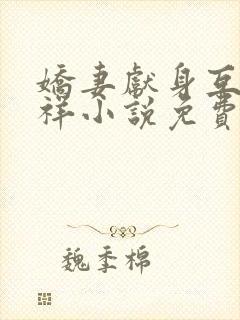 嬌妻獻身互
祥小說免費
魏季棉